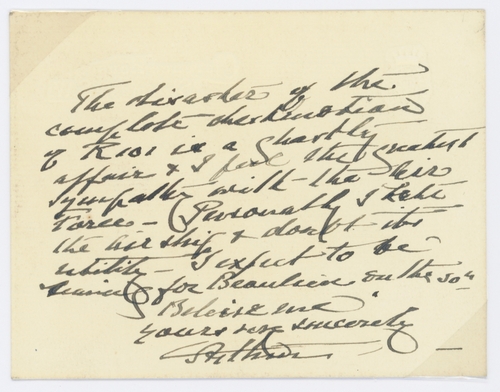 The disaster of the
complete destruction
of R101 is a Ghastly
affair & I feel the greatest
sympathy with the Air
Force – Personally I hate
the airship & doubt its
utility – I expect to be
leaving for Beaulieu on the 30th
Believe me
yours very sincerely
Arthur